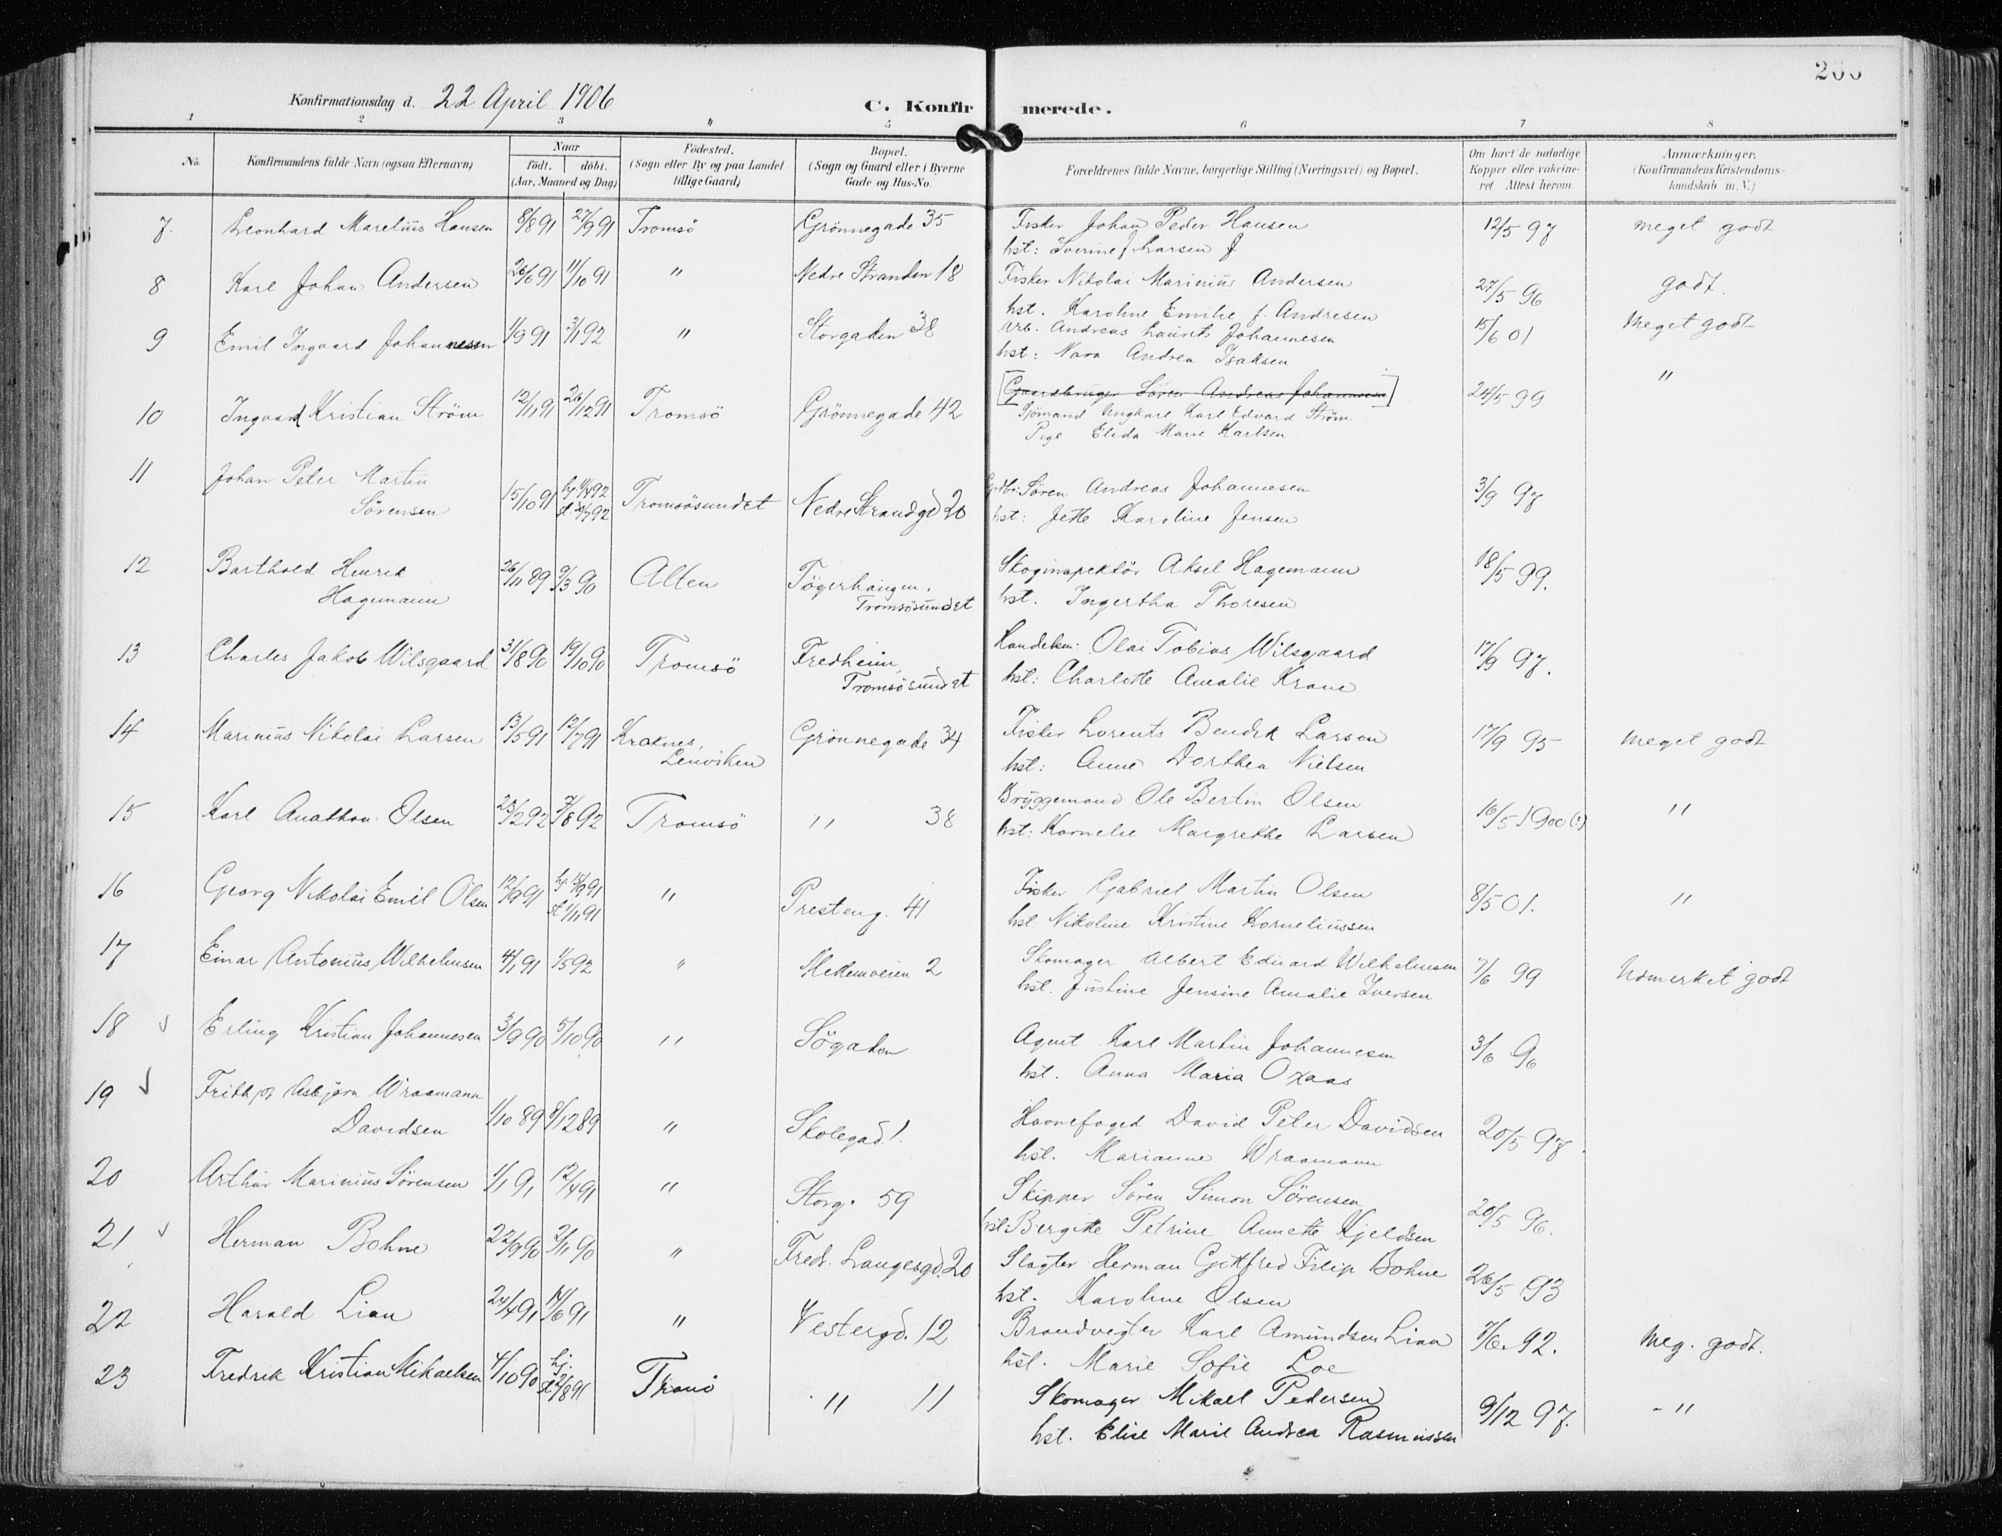 Konfirmationsdag d. 22 April 1906
C. Konfirmerede.
1 2 3 " 5 6 7 8
No. Konfirmandens fulde Navn (ogsaa Efternavn) Naar født. døbt. (Aar, Maaned og Dag) Fødested. (Sogn eller By og paa Landet tillige Gaard) Bopæl. (Sogn og Gaard eller i Byerne Gade og Hus-No. Forældrenes fulde Navne, borgerlige Stilling (Næringsvei) og Bopæl. Om havt de naturlige Kopper eller vakcineret Attest herom Anmærkninger. (Konfirmandens Kristendomskundskab m. V.)
7. Leonhard Marelius Hansen 8/8 91 27/9 91 Tromsö Grönnegade 35 Fisker Johan Peder Hansen 12/5 97 meget godt
hst: Iverine f. Larsen
8 Karl Johan Andersen 26/6 91 11/10 91 " Nedre Stranden 18 Fisker Nikolai Marinius Andersen 27/5 96 godt.
hst. Karoline Emilie f. Andresen
9 Emil Ingvard Johannesen 1/9 91 3/1 92 " Storgaden 38 Arb. Andreas Laurits Johannesen 15/6 01 Meget godt
hst: Nora Andrea Isaksen
[Gaardsbruger Sören Andreas Johannesen]
10 Ingvard Kristian Ström 12/11 91 26/12 91 Tromsö Grönnegade 42 Sjömand Ungkarl Karl Edvard Ström 24/5 99 "
Pige Elida Marie Karlsen
11 Johan Peter Martin Sörensen 15/10 91 Tromsösundet Nedre Strandgd 20 Grdbr: Sören Andreas Johannesen 3/9 97
hst: Jette Karoline Jensen
12 Barthold Henrik Hagemann 26/11 89 9/3 90 Alten Tögerhaugen, Tromsösundet Skoginspektör Aksel Hagemann 18/5 99.
hst. Ingertha Thoresen
13 Charles Jakob Wilsgaard 31/8 90 19/10 90 Tromsö Fredheim, Tromsösundet Handelsm: Olai Tobias Wilsgaard 17/9 97.
hst: Charlotte Amalie Krane
14 Marinius Nikolai Larsen 13/5 91 12/7 91 Kraknes, Lenviken Grönnegade 34 Fisker Lorents Bendik Larsen 17/9 95 meget godt
hst: Anne Dorthea Nielsen
15 Karl Anathon Olsen 23/2 92 7/8 92 Tromsö " 38 Bryggemand Ole Bertin Olsen 16/5 1900 (!) "
hst: Kornelie Margrethe Larsen
16 Georg Nikolai Emil Olsen 12/9 91 hj 15/9 91 st 1/11 91 " Presteng. 41 Fisker Gabriel Martin Olsen 8/5 01. "
hst. Nikoline Kristine Korneliussen
17 Einar Antonius Wilhelmsen 4/1 91 1/5 92 " 2 Skomager Albert Edvard Wilhelmsen 7/6 99 Udmerket godt
hst. Justine Jensine Amalie Iversen
18 Erling Kristian Johannesen 3/9 90 5/10 90 " Sögaden Agent Karl Martin Johannesen 3/6 96
hst. Anna Maria Oxaas
19 Fritkjof Asbjörn Wraamann Davidsen 1/10 89 8/12 89 " Skolegad 1. Havnefoged David Peter Davidsen 20/5 97.
hst. Marianne Wraamann
20 Arthur Marinius Sörensen 1/1 91 12/4 91 " Storg. 59 Skipper Sören Simon Sörensen 20/5 96.
hst: Bergitte Petrine Annette Kjeldsen
21 Herman Bohne 22/9 90 2/11 90 " Fredr. Langesgd. 20 Slagter Herman Gotfred Filip Bohne 26/5 93
hst. Karoline Olsen
22 Harald Lian 24/4 91 14/6 91 " Vestergd. 12 Brandvegter Karl Amundsen Lian 7/6. 92. Meg. godt.
hst. Marie Sofie Loe
23 Fredrik Kristian Mikaelsen 4/10 90 Tranö " 11 Skomager Mikael Pedersen 9/12 97. - "
hst. Elise Marie Andrea Rasmussen